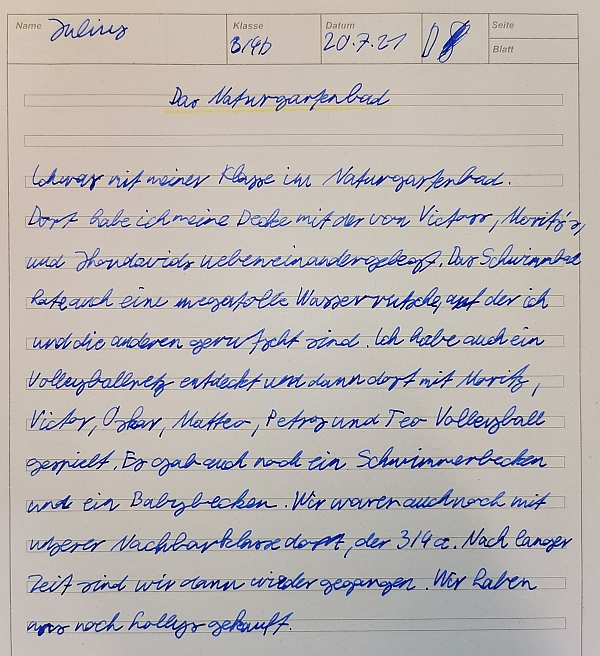 Name Julius Klasse 3/4b Datum 20.7.21 Seite
Blatt
Das Naturgartenbad
Ich war mit meiner Klasse im Naturgartenbad.
Dort habe ich meine Decke mit der von Victors, Moritz's,
und Jhondavids nebeneinandergelegt. Das Schwimmbad
hate auch eine megatolle Wasserrutsche, auf der ich
und die anderen gerutscht sind. Ich habe auch ein
Volleyballnetz entdeckt und dann dort mit Moritz,
Victor, Oskar, Matteo, Petros und Teo Volleyball
gespielt. Es gab auch noch ein Schwimmerbecken
und ein Babybecken. Wir waren auch noch mit
unserer Nachbarklasse dort, der 3/4a. Nach langer
Zeit sind wir dann wieder gegangen. Wir haben
uns noch Lollys gekauft.